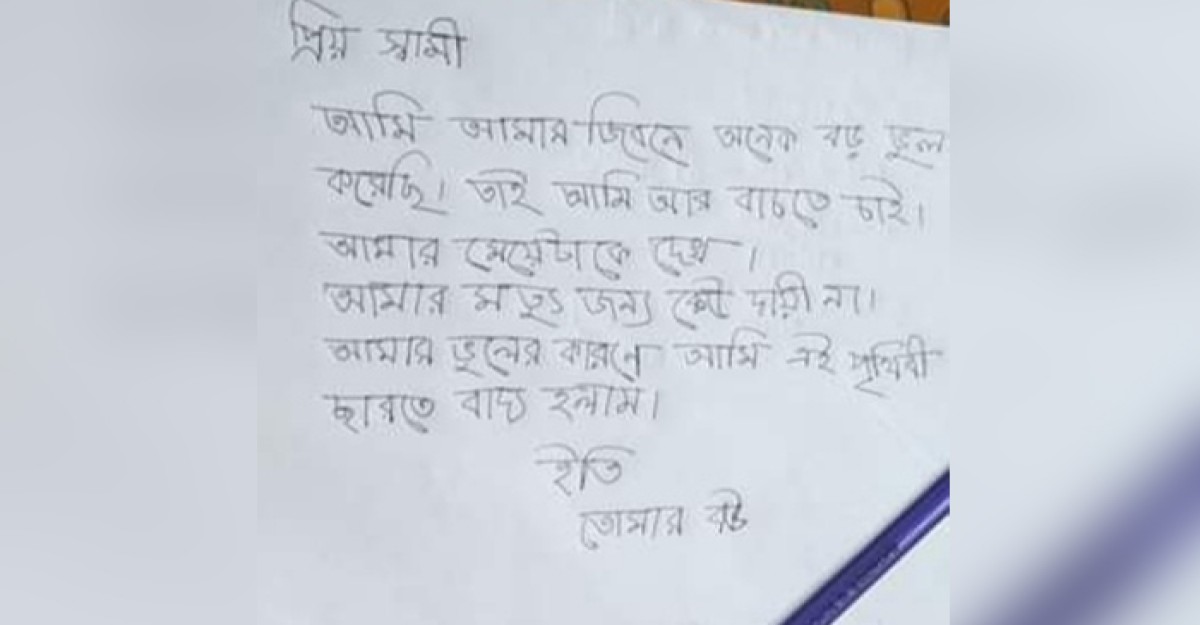 প্রিয় স্বামী
আমি আমার জিবনে অনেক বড় ভুল
করেছি। তাই আমি আর বাচতে চাই।
আমার মেয়েটাকে দেখ।
আমার মত্যু জন্য কেউ দায়ী না।
আমার ভুলের কারনে আমি এই পৃথিবী
ছারতে বাধ্য হলাম।
ইতি
তোমার বউ